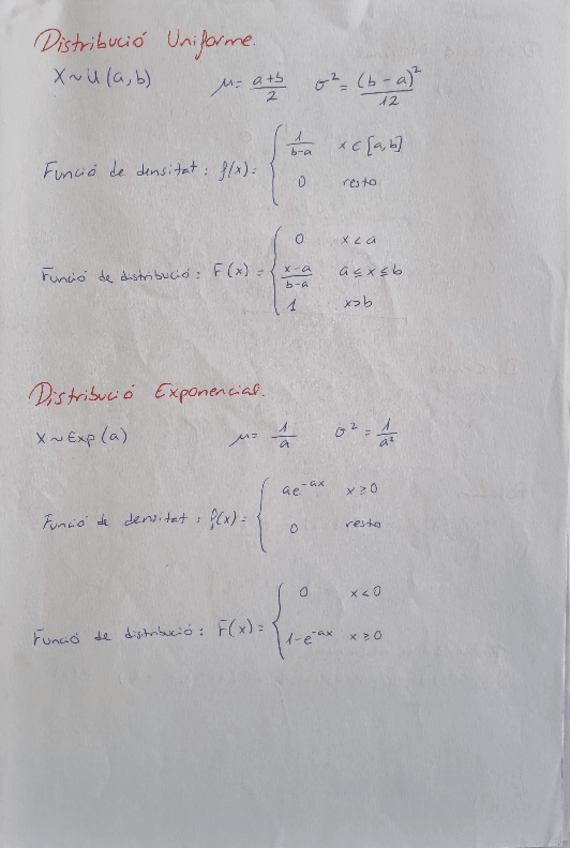 Distribució Uniforme.
X ~ U (a, b) μ = a+b/2 σ² = (b-a)²/12
Funció de densitat: f(x) = { 1/b-a x ∈ [a,b]
0 resto
Funció de distribució: F(x) = { 0 x < a
x-a/b-a a ≤ x ≤ b
1 x > b
Distribució Exponencial.
X ~ Exp (a) μ = 1/a σ² = 1/a²
Funció de densitat: f(x) = { ae^-ax x ≥ 0
0 resto
Funció de distribució: F(x) = { 0 x < 0
1 - e^-ax x ≥ 0